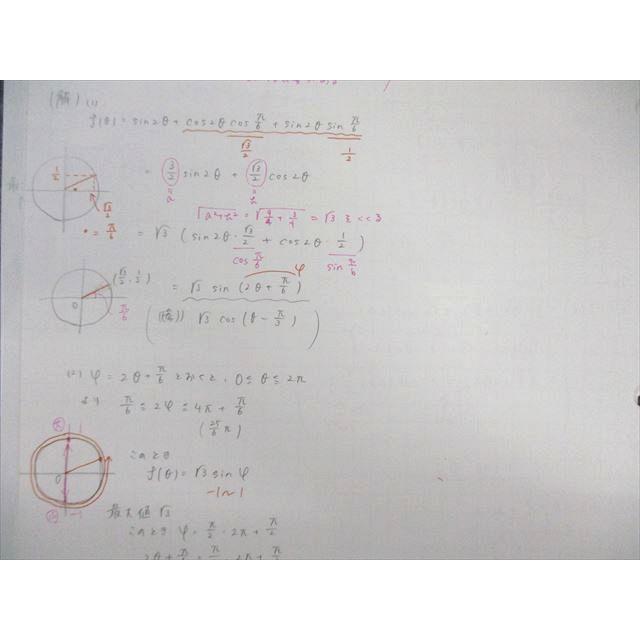 (解) (1)
f(θ) = sin2θ + cos2θ cos π/6 + sin2θ sin π/6
√3/2 1/2
= 3/2 sin2θ + √3/2 cos2θ
1/2
a
√3/2
√a²+b² = √9/4+3/4 = √3
• = π/6
= √3 (sin2θ・√3/2 + cos2θ・1/2)
cos π/6 sin π/6
φ
(√3/2, 1/2)
= √3 sin (2θ + π/6)
0
π/6
√3 cos (θ - π/3)
(2) φ = 2θ + π/6 とおくと、0 ≦ θ ≦ 2π
より π/6 ≦ 2φ ≦ 4π + π/6
(25/6 π)
1
このとき
0
f(θ) = √3 sin φ
-1〜1
-1
最大値 √3
このとき φ = π/2, 2π + π/2
2θ + π/6 = π/2, 2π + π/2